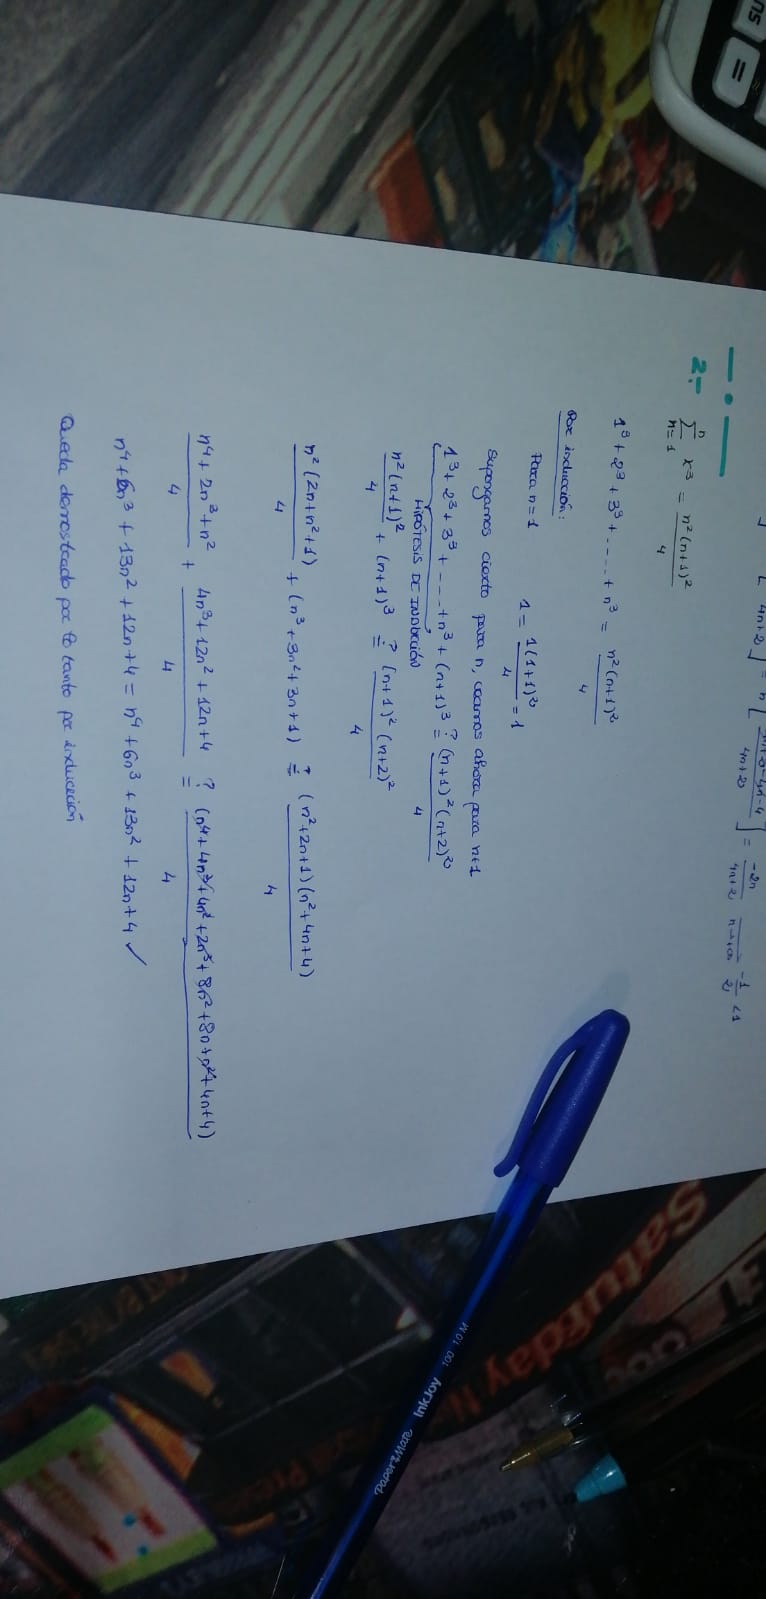 4n+2 ] = n [ 4n+2 ] = -2n / 4n+2 n→+∞ -1/2 <1
2.- n Σ n=1 x³ = n²(n+1)² / 4
1³ + 2³ + 3³ + ..... + n³ = n²(n+1)² / 4
Por inducción:
Para n=1 1 = 1(1+1)² / 4 = 1
Supongamos cierto para n, veamos ahora para n+1
1³ + 2³ + 3³ + ---- + n³ + (n+1)³ ?= (n+1)²(n+2)² / 4
HIPÓTESIS DE INDUCCIÓN
n²(n+1)² / 4 + (n+1)³ ?= (n+1)² (n+2)² / 4
n²(2n+n²+1) / 4 + (n³+3n²+3n+1) ?= (n²+2n+1)(n²+4n+4) / 4
n⁴+2n³+n² / 4 + 4n³+12n²+12n+4 / 4 ?= (n⁴+4n³+4n²+2n³+8n²+8n+n²+4n+4) / 4
n⁴+6n³+13n²+12n+4 = n⁴+6n³+13n²+12n+4 ✓
Queda demostrado por lo tanto por inducición
PaperMate InkJoy 100 1.0 M
Saturday
=